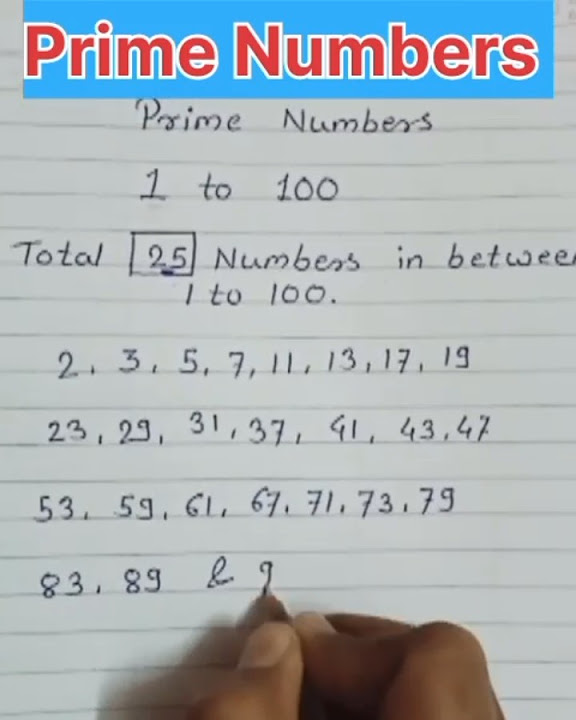 Prime Numbers
Prime Numbers
1 to 100
Total 25 Numbers in between
1 to 100.
2, 3, 5, 7, 11, 13, 17, 19
23, 29, 31, 37, 41, 43, 47
53, 59, 61, 67, 71, 73, 79
83, 89 & 9